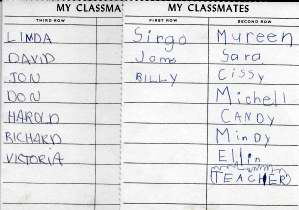 MY CLASSMA
THIRD ROW
LINDA
DAVID
JON
DON
HAROLD
RICHARD
VICTORIA
MY CLASSMATES
FIRST ROW
SECOND ROW
Sirgo
Mureen
Jams
Sara
BILLY
Cissy
Michell
CANDY
MinDy
Ellin
(TEACHER)